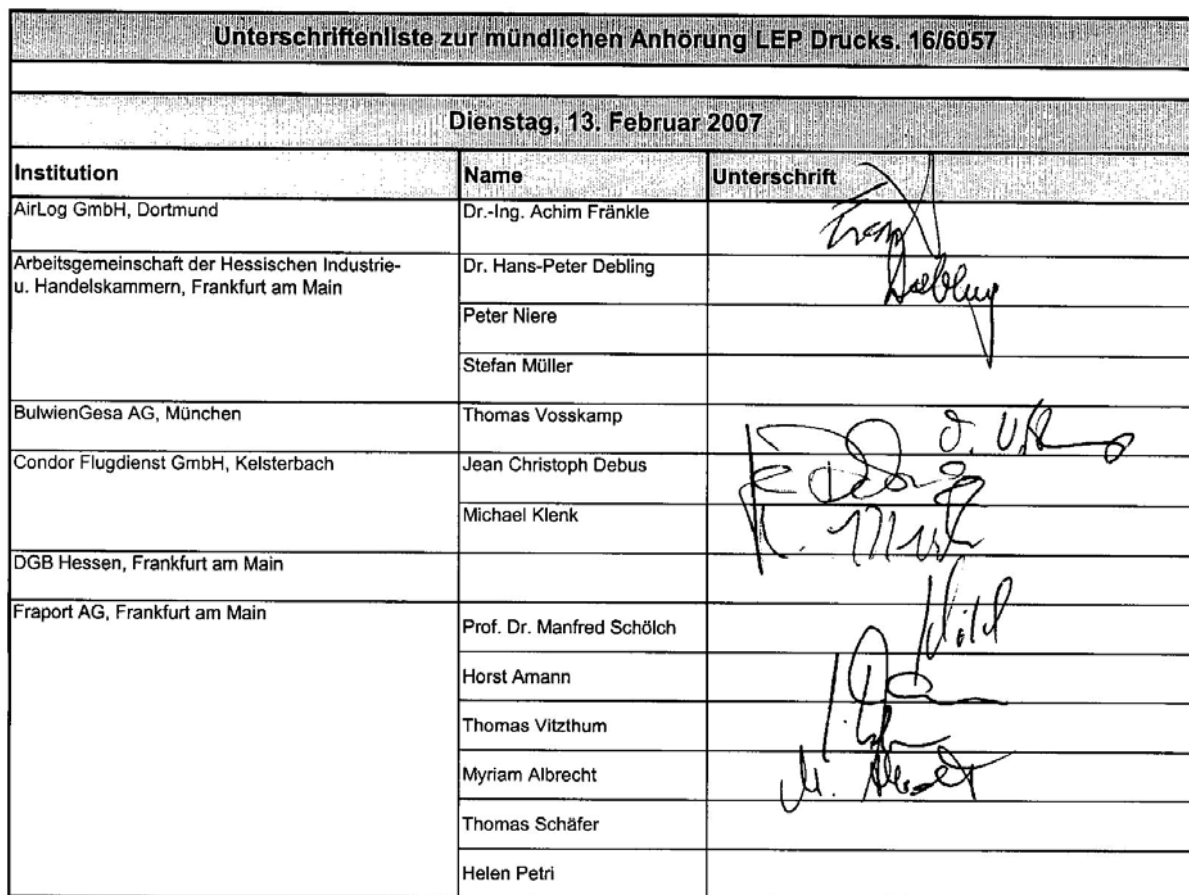 Unterschriftenliste zur mündlichen Anhörung LEP Drucks. 16/6057
Dienstag, 13. Februar 2007
Institution Name Unterschrift
AirLog GmbH, Dortmund Dr.-Ing. Achim Fränkle
Arbeitsgemeinschaft der Hessischen Industrie- Dr. Hans-Peter Debling
u. Handelskammern, Frankfurt am Main
Peter Niere
Stefan Müller
BulwienGesa AG, München Thomas Vosskamp
Condor Flugdienst GmbH, Kelsterbach Jean Christoph Debus
Michael Klenk
DGB Hessen, Frankfurt am Main
Fraport AG, Frankfurt am Main
Prof. Dr. Manfred Schölch
Horst Amann
Thomas Vitzthum
Myriam Albrecht
Thomas Schäfer
Helen Petri